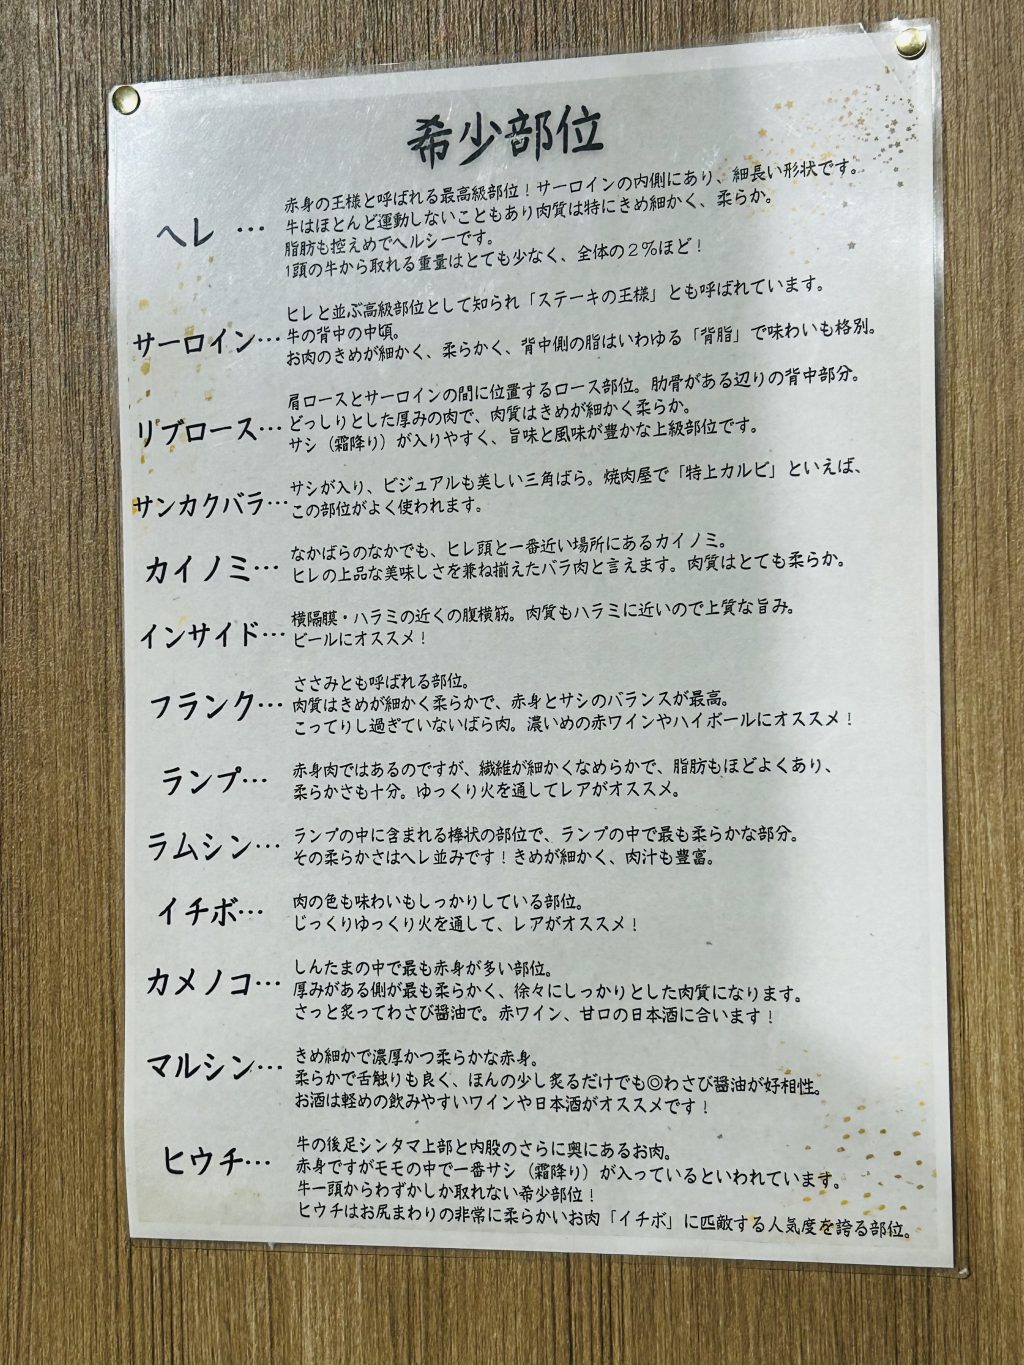 希少部位
赤身の王様と呼ばれる最高級部位！サーロインの内側にあり、細長い形状です。
ヘレ … 牛はほとんど運動しないこともあり肉質は特にきめ細かく、柔らか。
脂肪も控えめでヘルシーです。
1頭の牛から取れる重量はとても少なく、全体の２％ほど！
ヒレと並ぶ高級部位として知られ「ステーキの王様」とも呼ばれています。
サーロイン… 牛の背中の中頃。
お肉のきめが細かく、柔らかく、背中側の脂はいわゆる「背脂」で味わいも格別。
肩ロースとサーロインの間に位置するロース部位。肋骨がある辺りの背中部分。
リブロース… どっしりとした厚みの肉で、肉質はきめが細かく柔らか。
サシ（霜降り）が入りやすく、旨味と風味が豊かな上級部位です。
サンカクバラ… サシが入り、ビジュアルも美しい三角ばら。焼肉屋で「特上カルビ」といえば、
この部位がよく使われます。
カイノミ… なかばらのなかでも、ヒレ頭と一番近い場所にあるカイノミ。
ヒレの上品な美味しさを兼ね揃えたバラ肉と言えます。肉質はとても柔らか。
インサイド… 横隔膜・ハラミの近くの腹横筋。肉質もハラミに近いので上質な旨み。
ビールにオススメ！
ささみとも呼ばれる部位。
フランク… 肉質はきめが細かく柔らかで、赤身とサシのバランスが最高。
こってりし過ぎていないばら肉。濃いめの赤ワインやハイボールにオススメ！
ランプ… 赤身肉ではあるのですが、繊維が細かくなめらかで、脂肪もほどよくあり、
柔らかさも十分。ゆっくり火を通してレアがオススメ。
ラムシン… ランプの中に含まれる棒状の部位で、ランプの中で最も柔らかな部分。
その柔らかさはヘレ並みです！きめが細かく、肉汁も豊富。
イチボ… 肉の色も味わいもしっかりしている部位。
じっくりゆっくり火を通して、レアがオススメ！
カメノコ… しんたまの中で最も赤身が多い部位。
厚みがある側が最も柔らかく、徐々にしっかりとした肉質になります。
さっと炙ってわさび醤油で。赤ワイン、甘口の日本酒に合います！
マルシン… きめ細かで濃厚かつ柔らかな赤身。
柔らかで舌触りも良く、ほんの少し炙るだけでも◎わさび醤油が好相性。
お酒は軽めの飲みやすいワインや日本酒がオススメです！
牛の後足シンタマ上部と内股のさらに奥にあるお肉。
ヒウチ… 赤身ですがモモの中で一番サシ（霜降り）が入っているといわれています。
牛一頭からわずかしか取れない希少部位！
ヒウチはお尻まわりの非常に柔らかいお肉「イチボ」に匹敵する人気度を誇る部位。